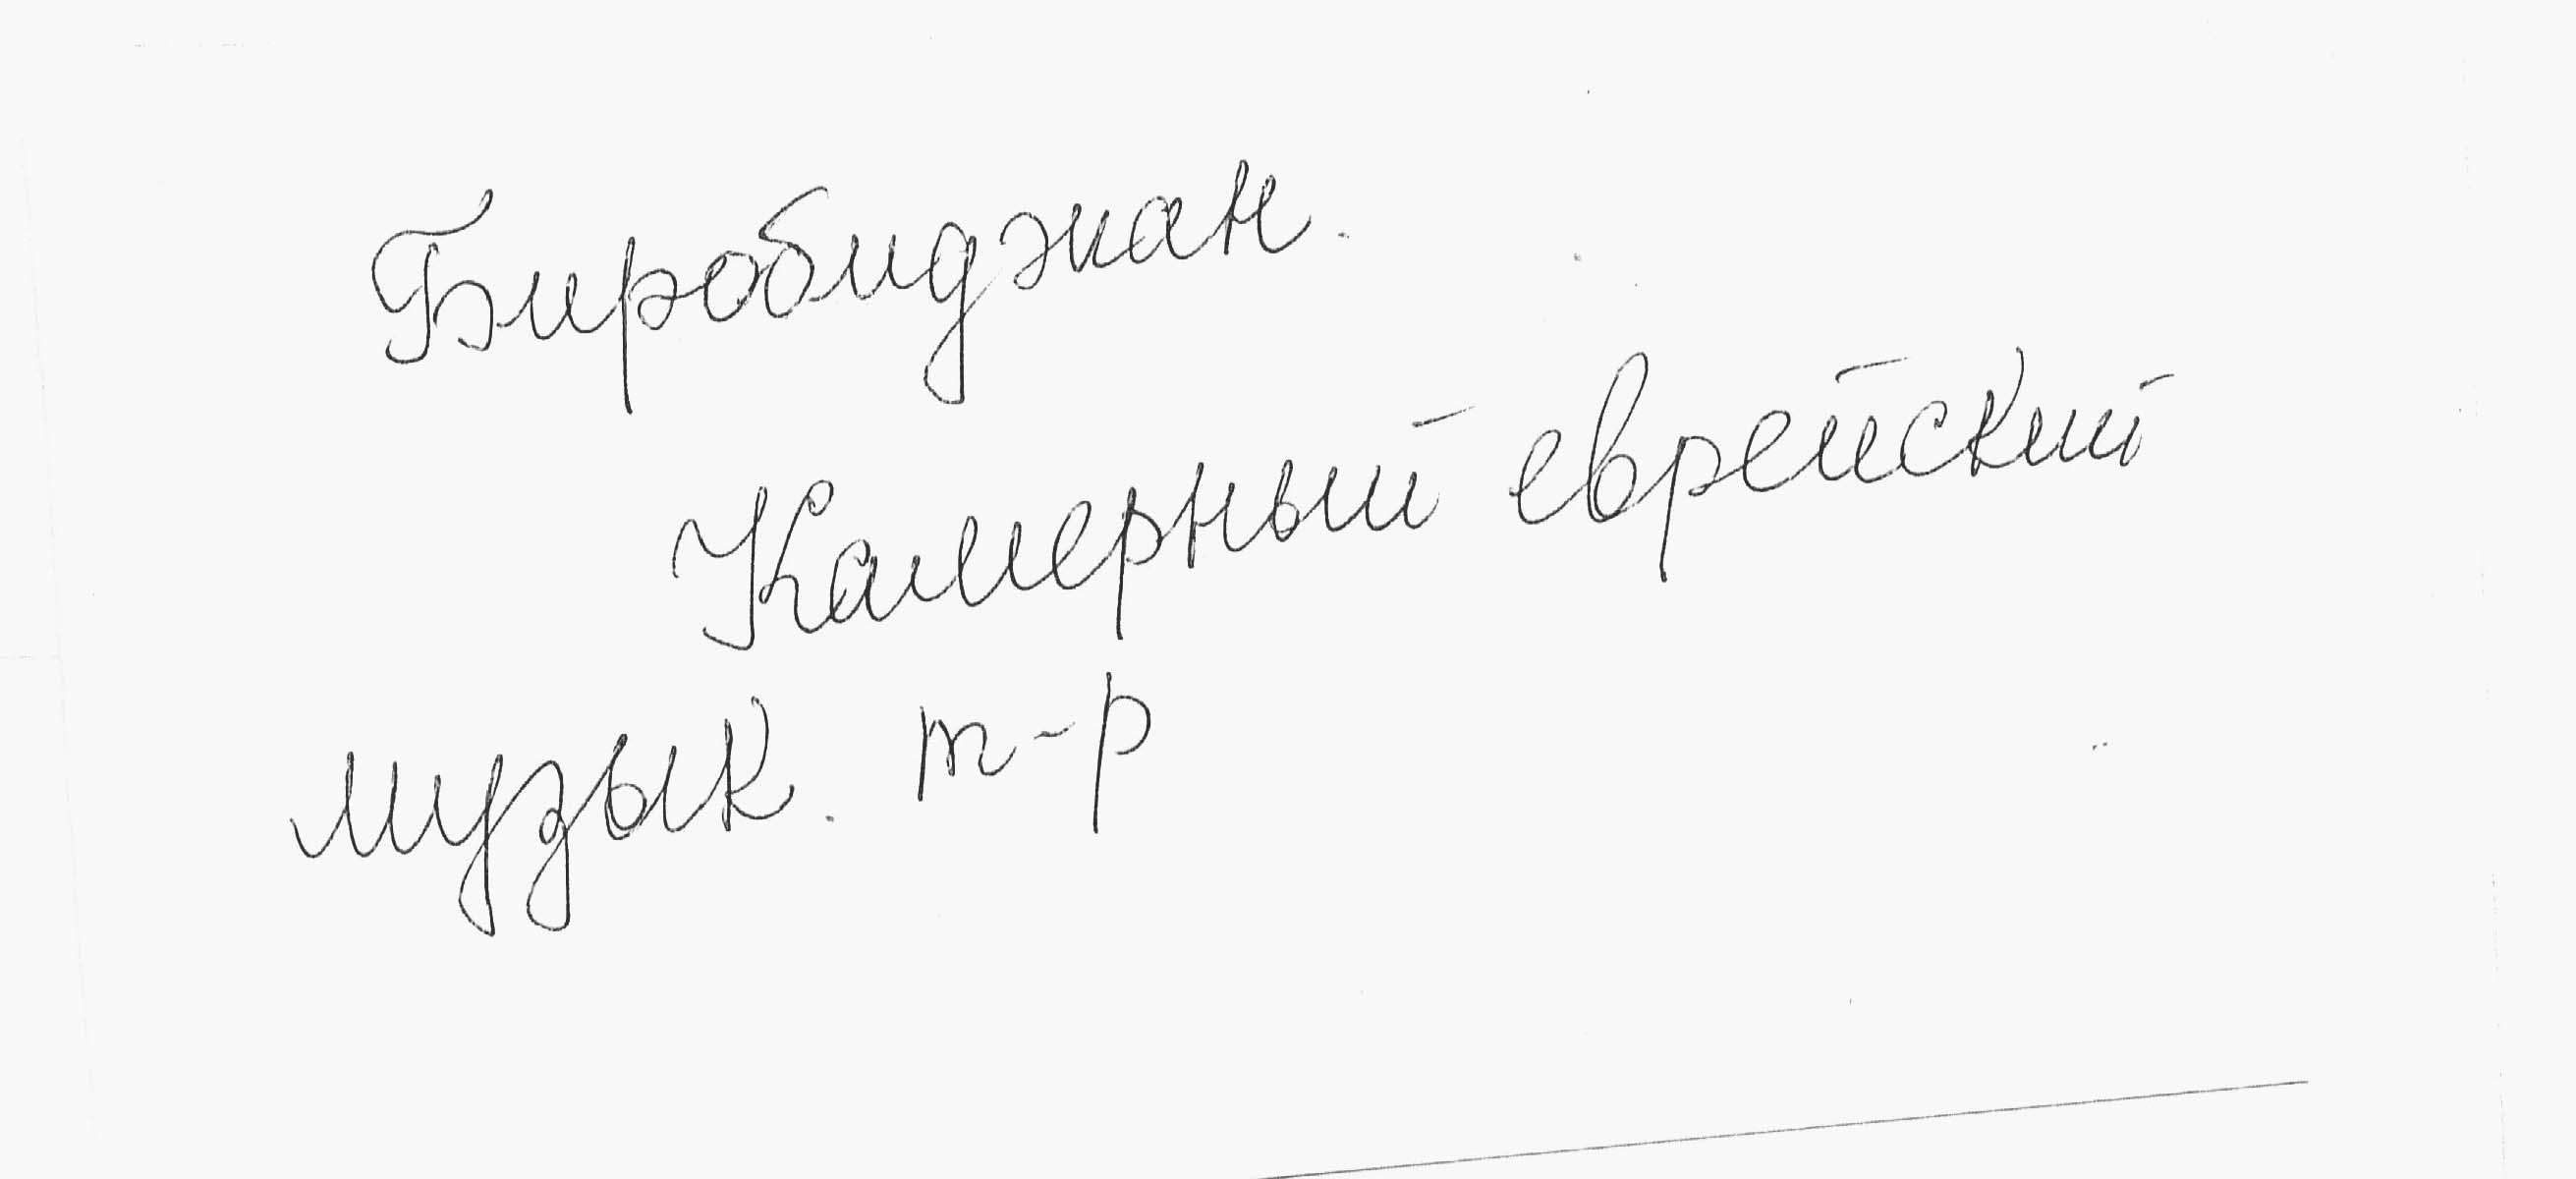 Биробиджан.
Камерный еврейский
музык. т-р